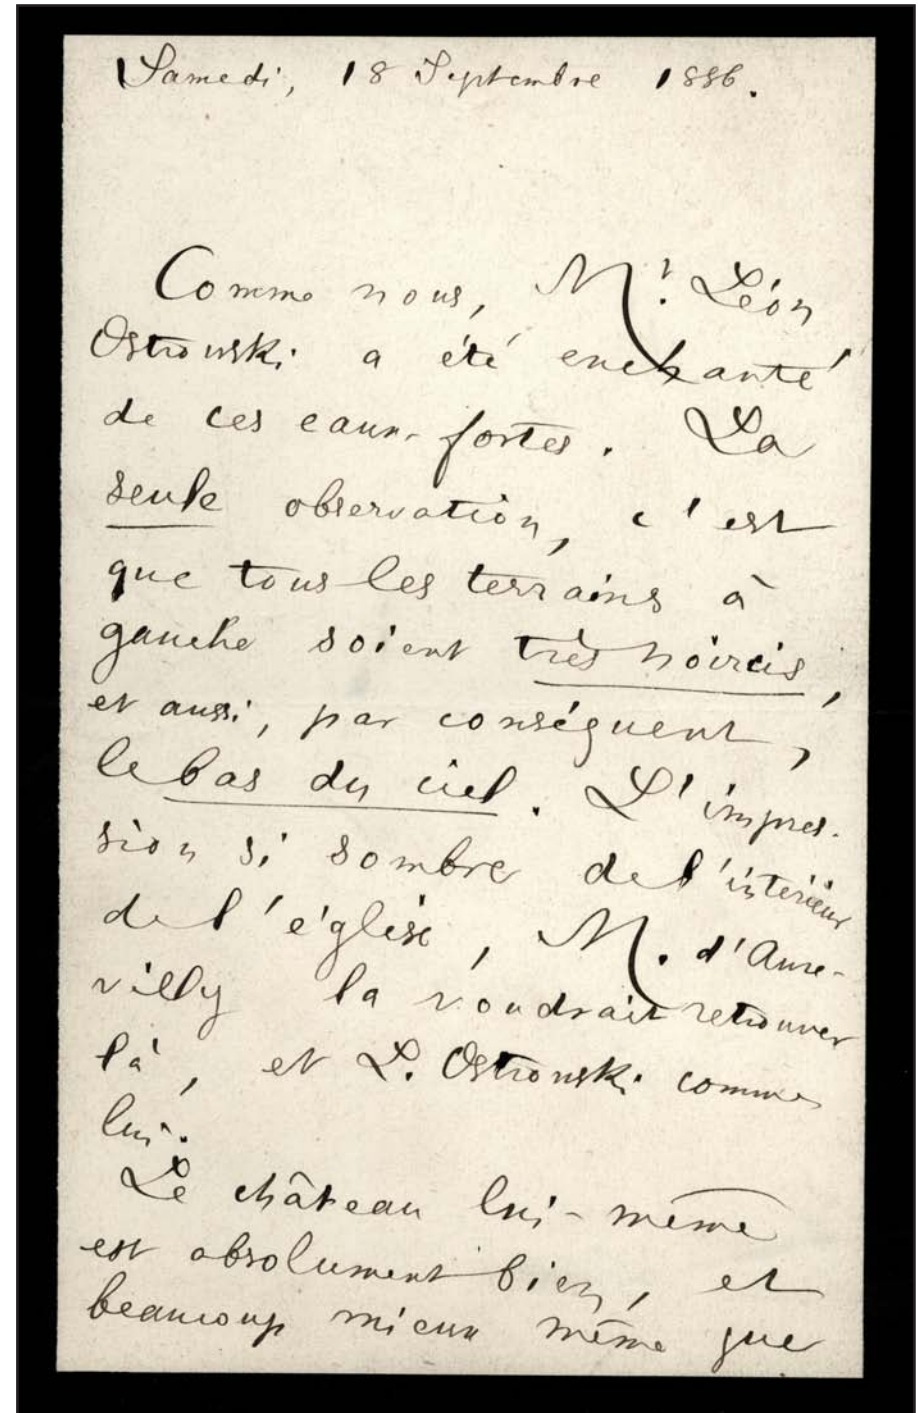 Samedi, 18 Septembre 1886.
Comme nous, Mr. Léon
Ostrowski a été enchanté
de ces eaux-fortes. La
seule observation, c'est
que tous les terrains à
gauche soient très noircis,
et aussi, par conséquent,
le bas du ciel. L'impres-
sion si sombre de l'intérieur
de l'église, M. d'Aure-
villy la voudrait retrouver
là, et L. Ostrowski comme
lui.
Le château lui-même
est absolument bien, et
beaucoup mieux même que